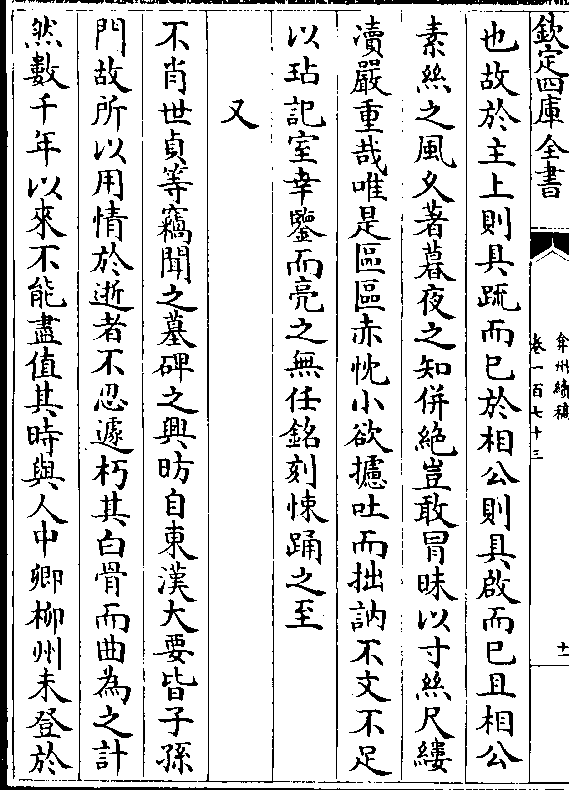 欽定四庫全書
弇州續稿
卷一百七十三
十一
也故於主上則具䟽而已於相公則具啟而已且相公
素絲之風久著暮夜之知併絶豈敢冒昧以寸絲尺縷
凟嚴重哉唯是區區赤忱小欲攄吐而拙訥不文不足
以玷記室幸鑒而亮之無任銘刻悚踊之至
又
不肖世貞等竊聞之墓碑之興昉自東漢大要皆子孫
門故所以用情於逝者不忍遽朽其白骨而曲為之計
然數千年以來不能盡值其時與人中卿柳州未登於